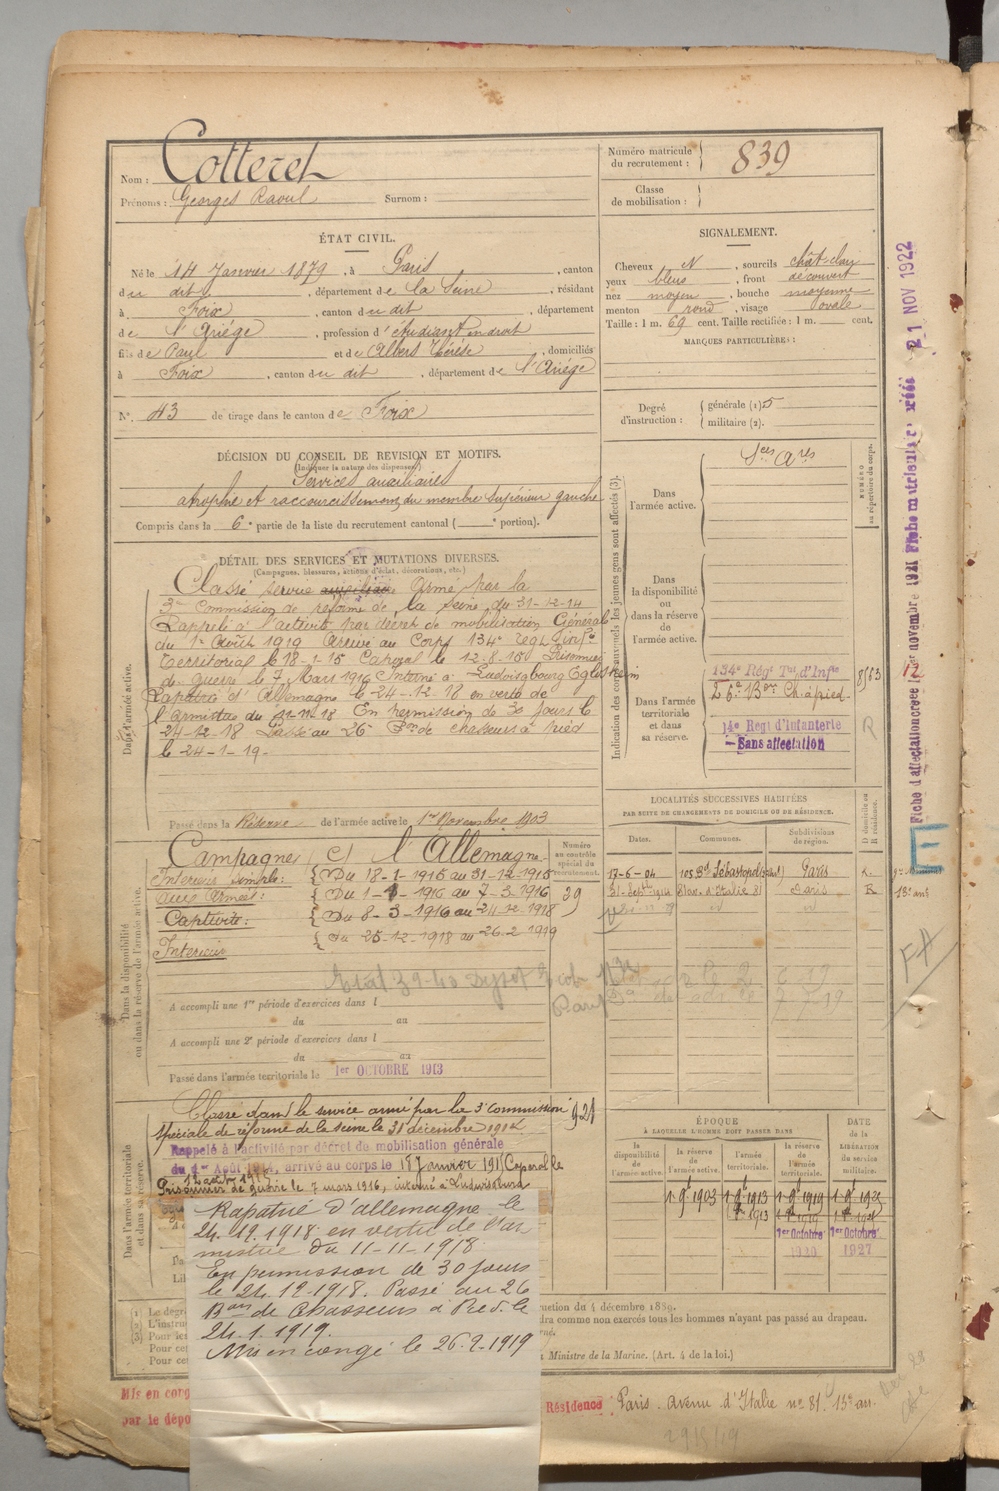 Nom : Cotteret
Prénoms : Georges Raoul Surnom :
Numéro matricule du recrutement : 839
Classe de mobilisation :
ÉTAT CIVIL.
Né le 14 Janvier 1879, à Paris, canton
du dit, département de la Seine, résidant
à Foix, canton du dit, département
de l'Ariége, profession d'étudiant en droit
fils de Paul et de Albert Térése, domiciliés
à Foix, canton du dit, département de l'Ariége
N° 43 de tirage dans le canton de Foix
SIGNALEMENT.
Cheveux N, sourcils chât clair
yeux bleus, front découvert
nez moyen, bouche moyenne
menton rond, visage ovale
Taille : 1 m. 69 cent. Taille rectifiée : 1 m. cent.
MARQUES PARTICULIÈRES :
Degré d'instruction : générale (1) 5
militaire (2).
DÉCISION DU CONSEIL DE REVISION ET MOTIFS.
(Indiquer la nature des dispenses)
Services auxiliaires
atrophie et raccourcissement du membre supérieur gauche
Compris dans la 6e partie de la liste du recrutement cantonal ( e portion).
DÉTAIL DES SERVICES ET MUTATIONS DIVERSES.
(Campagnes, blessures, actions d'éclat, décorations, etc.)
Classé service auxiliaire Armé par la
3e Commission de réforme de la Seine du 31-12-14
Rappelé à l'activité par décret de mobilisation Général
du 1er Août 1919 Arrivé au Corps 134e Regt Infie
Territorial le 18-1-15 Caporal le 12-8-15 Prisonnier
de guerre le 7 Mars 1916 Interné à Ludwisbourg Eglosheim
Rapatrié d'Allemagne le 24-12-18 en vertu de
l'armistice du 11-11-18 En permission de 30 jours le
24-12-18 Passé au 26 Bon de chasseurs à pied
le 24-1-19-
Passé dans la Réserve de l'armée active le 1er Novembre 1903
Dans l'armée active.
Indication des corps auxquels les jeunes gens sont affectés (3).
NUMÉRO au répertoire du corps.
Dans l'armée active.
Sces Ares
Dans la disponibilité ou dans la réserve de l'armée active.
Dans l'armée territoriale et dans sa réserve.
134e Régt Tal d'Infie
26e Bon Ch. à pied
14e Regt d'Infanterie
Sans affectation
R
Campagnes C/ l'Allemagne
Intérieur simple : Du 18-1-1915 au 31-12-1915
Aux Armées : Du 1-1-1916 au 7-3-1916
Captivité : Du 8-3-1916 au 24-12-1918
Intérieur Du 25-12-1918 au 26-2-1919
Numéro au contrôle spécial du recrutement.
39
921
Dans la disponibilité ou dans la réserve de l'armée active.
A accompli une 1re période d'exercices dans l
du au
A accompli une 2e période d'exercices dans l
du au
Passé dans l'armée territoriale le 1er OCTOBRE 1913
LOCALITÉS SUCCESSIVES HABITÉES
PAR SUITE DE CHANGEMENTS DE DOMICILE OU DE RÉSIDENCE.
Dates. Communes. Subdivisions de région. D domicile ou R résidence.
17-6-04 105 Bd Sébastopol Paris
31-Sept-1912 Av. d'Italie 81 Paris R 13e ar
Dans l'armée territoriale et dans sa réserve.
Classé dans le service armé par la 3e commission
spéciale de réforme de la seine le 31 décembre 1914
Rappelé à l'activité par décret de mobilisation générale
du 1er Août 1914, arrivé au corps le 18 Janvier 1915 Caporal le
12 août 1915
Prisonnier de guerre le 7 mars 1916, interné à Ludwisburg
Rapatrié d'allemagne le
24.12.1918 en vertu de l'ar-
mistice du 11-11-1918.
En permission de 30 jours
le 24.12.1918. Passé au 26
Bon de Chasseurs à Pied le
24.1.1919.
Mis en congé le 26.2.1919
ÉPOQUE
À LAQUELLE L'HOMME DOIT PASSER DANS
DATE de la LIBÉRATION du service militaire.
la disponibilité de l'armée active. la réserve de l'armée active. l'armée territoriale. la réserve de l'armée territoriale.
1-9b 1903 1-9b 1913 1-9b 1919 1-9b 1925
1er Octobre 1920 1er Octobre 1927
uction du 4 décembre 1889.
dra comme non exercés tous les hommes n'ayant pas passé au drapeau.
u Ministre de la Marine. (Art. 4 de la loi.)
(1) Le degr
(2) L'instru
(3) Pour les
Pour cet
Pour cet
Mis en cong
par le dépo
Résidence : Paris. avenue d'Italie no 81. 13e arr.
Fiche d'affectation créée le 1er novembre 1921 Fiche matriculaire créée 21 NOV 1922
E
FA